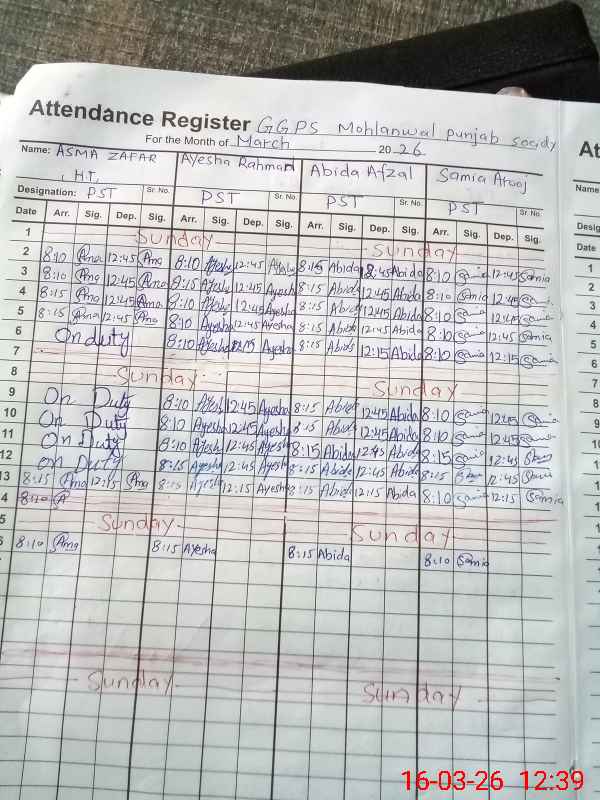 Attendance Register GGPS Mohlanwal punjab society
For the Month of March 2026
Name: ASMA ZAFAR Ayesha Rahman Abida Afzal Samia Arooj
(H.T) Sr. No. Sr. No. Sr. No. Sr. No.
Designation: PST PST PST PST
Date Arr. Sig. Dep. Sig. Arr. Sig. Dep. Sig. Arr. Sig. Dep. Sig. Arr. Sig. Dep. Sig.
1 Sunday Sunday
2 8:10 Ama 12:45 Ama 8:10 Ayesha 12:45 Ayesha 8:15 Abida 12:45 Abida 8:10 Samia 12:45 Samia
3 8:10 Ama 12:45 Ama 8:15 Ayesha 12:45 Ayesha 8:15 Abida 12:45 Abida 8:10 Samia 12:45 Samia
4 8:15 Ama 12:45 Ama 8:10 Ayesha 12:45 Ayesha 8:15 Abida 12:45 Abida 8:10 Samia 12:45 Samia
5 8:15 Ama 12:45 Ama 8:10 Ayesha 12:45 Ayesha 8:15 Abida 12:45 Abida 8:10 Samia 12:45 Samia
6 On duty 8:10 Ayesha 12:15 Ayesha 8:15 Abida 12:15 Abida 8:10 Samia 12:15 Samia
7
8 Sunday Sunday
9 On Duty 8:10 Ayesha 12:45 Ayesha 8:15 Abida 12:45 Abida 8:10 Samia 12:45 Samia
10 On Duty 8:10 Ayesha 12:45 Ayesha 8:15 Abida 12:45 Abida 8:10 Samia 12:45 Samia
11 On Duty 8:10 Ayesha 12:45 Ayesha 8:15 Abida 12:45 Abida 8:15 Samia 12:45
12 On Duty 8:15 Ayesha 12:45 Ayesha 8:15 Abida 12:45 Abida 8:15 12:45
13 8:15 Ama 12:15 Ama 8:15 Ayesha 12:15 Ayesha 8:15 Abida 12:15 Abida 8:10 Samia 12:15 Samia
4 8:10 A
5 Sunday Sunday
6 8:10 Ama 8:15 Ayesha 8:15 Abida 8:10 Samia
Sunday Sunday
At
Name
Desig
Da
1
2
3
4
5
6
7
8
9
10
11
12
13
14
15
16
17
18
16-03-26 12:39